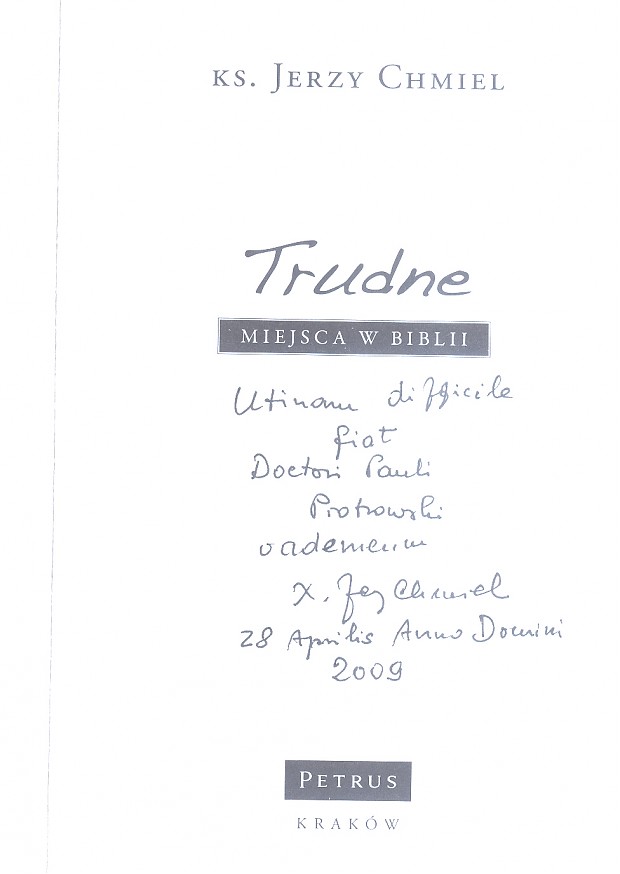 KS. JERZY CHMIEL
Trudne
MIEJSCA W BIBLII
Utinam difficile
fiat
Doctori Pauli
Piotrowski
vademecum
X. Jerzy Chmiel
28 Aprilis Anno Domini
2009
PETRUS
KRAKÓW